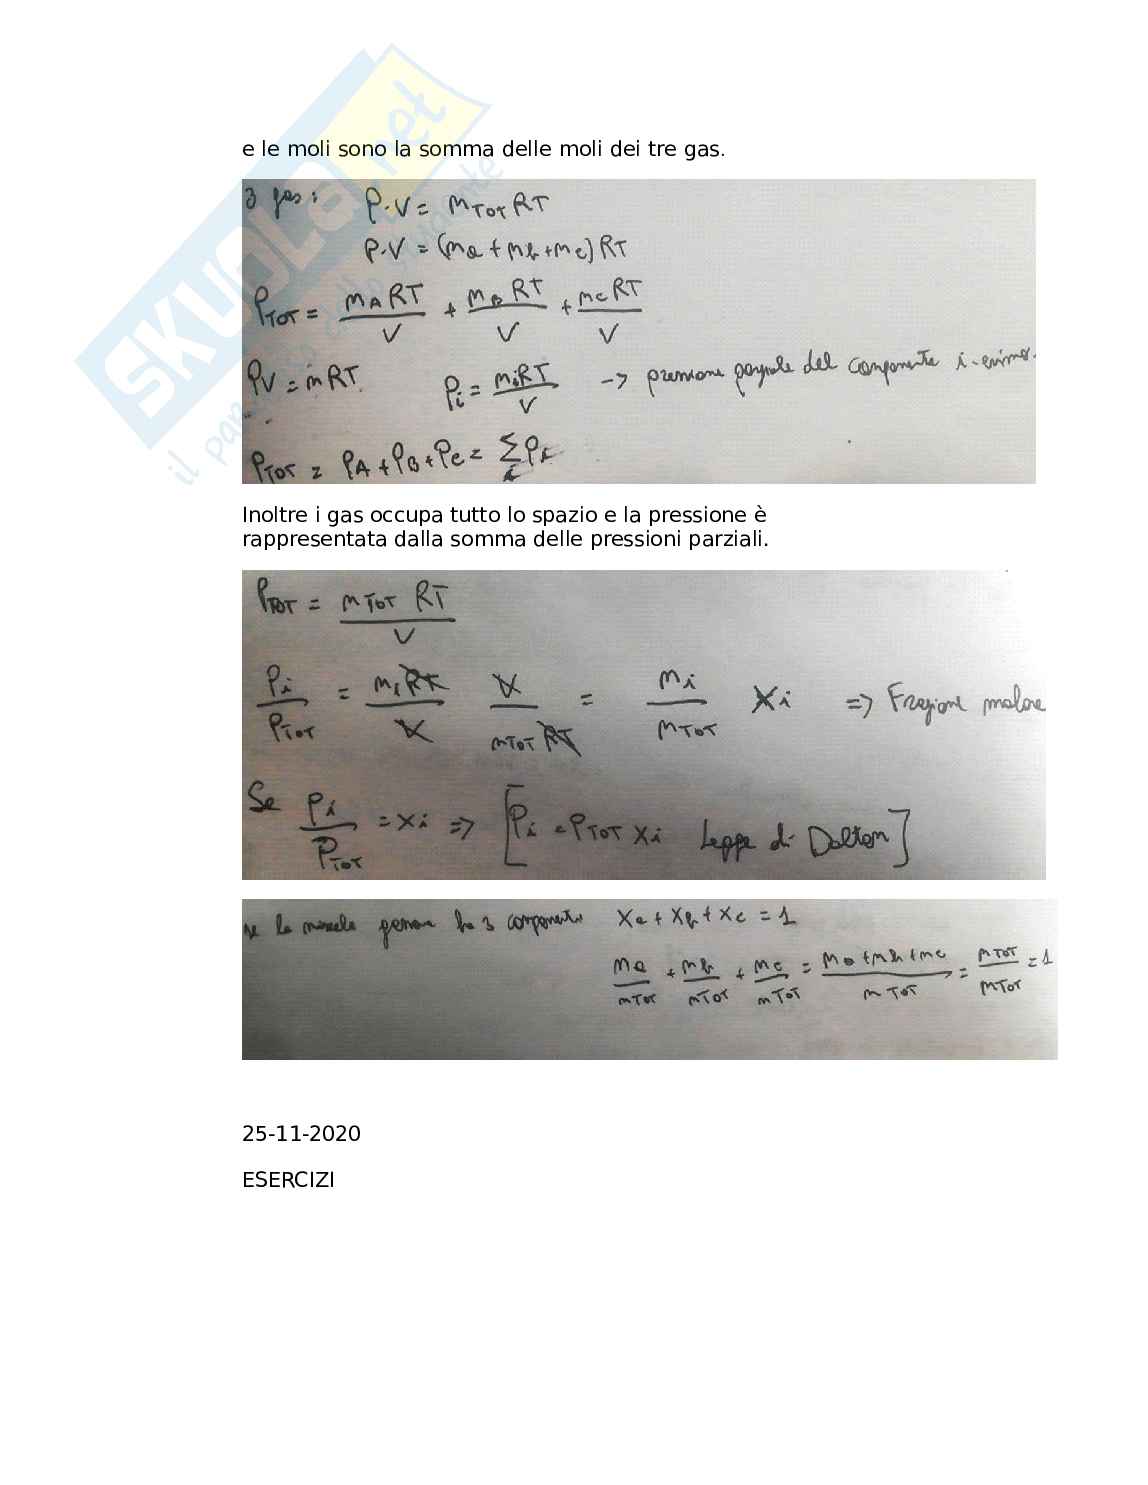 SKUOLA.net
il paradiso dello studente
e le moli sono la somma delle moli dei tre gas.
3 gas: P·V = nTOT RT
P·V = (na + nb + nc) RT
PTOT = nA RT / V + nB RT / V + nC RT / V
PV = nRT   Pi = ni RT / V → pressione parziale del componente i-esimo.
PTOT = PA + PB + PC = Σi Pi
Inoltre i gas occupa tutto lo spazio e la pressione è
rappresentata dalla somma delle pressioni parziali.
PTOT = nTOT RT / V
Pi / PTOT = ni RT / V   V / nTOT RT = ni / nTOT   Xi ⇒ Frazione molare
Se Pi / PTOT = Xi ⇒ [Pi = PTOT Xi Legge di Dalton]
se la miscela gassosa ha 3 componenti Xa + Xb + Xc = 1
na / nTOT + nb / nTOT + nc / nTOT = na + nb + nc / nTOT = nTOT / nTOT = 1
25-11-2020
ESERCIZI